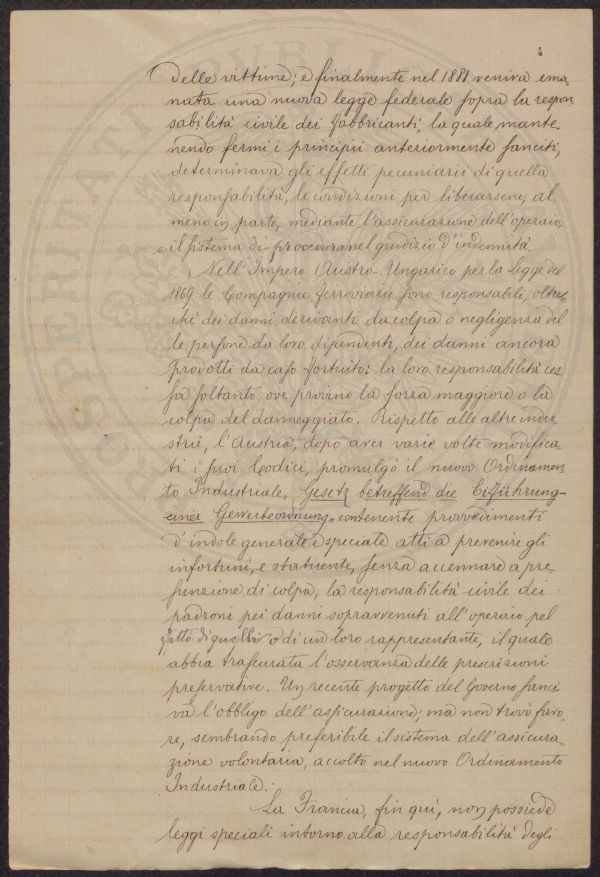 delle vittime; e finalmente nel 1881 veniva ema-
nata una nuova legge federale sopra la respon
sabilità civile dei Fabbricanti, la quale, mante-
nendo fermi i principii anteriormente sanciti,
determinava gli effetti pecuniarii di quella
responsabilità, le condizioni per liberarsene, al
meno in parte, mediante l'assicurazione dell'operaio
e il sistema di procedura nel giudizio d'indennità.
Nell'Impero Austro-Ungarico per la Legge del
1869 le Compagnie Ferroviarie sono responsabili, oltre
chè dei danni derivanti da colpa o negligenza del
le persone da loro dipendenti, dei danni ancora
prodotti da caso fortuito: la loro responsabilità ces
sa soltanto ove provino la forza maggiore o la
colpa del danneggiato. Rispetto alle altre indu
strie, l'Austria, dopo aver varie volte modifica-
ti i suoi Codici, promulgò il nuovo Ordinamen
to Industriale "Gesetz betreffend die Eiführung
einer Gewerbeordnung" contenente provvedimenti
d'indole generale e speciale atti a prevenire gli
infortuni, e statuente, senza accennare a pre-
sunzione di colpa, la responsabilità civile dei
padroni pei danni sopravvenuti all'operaio pel
fatto di quelli o di un loro rappresentante, il quale
abbia trascurata l'osservanza delle prescrizioni
preservative. Un recente progetto del Governo sanci
va l'obbligo dell'assicurazione; ma non trovò favo-
re, sembrando preferibile il sistema dell'assicura-
zione volontaria, accolto nel nuovo Ordinamento
Industriale.-
La Francia, fin quì, non possiede
leggi speciali intorno alla responsabilità degli